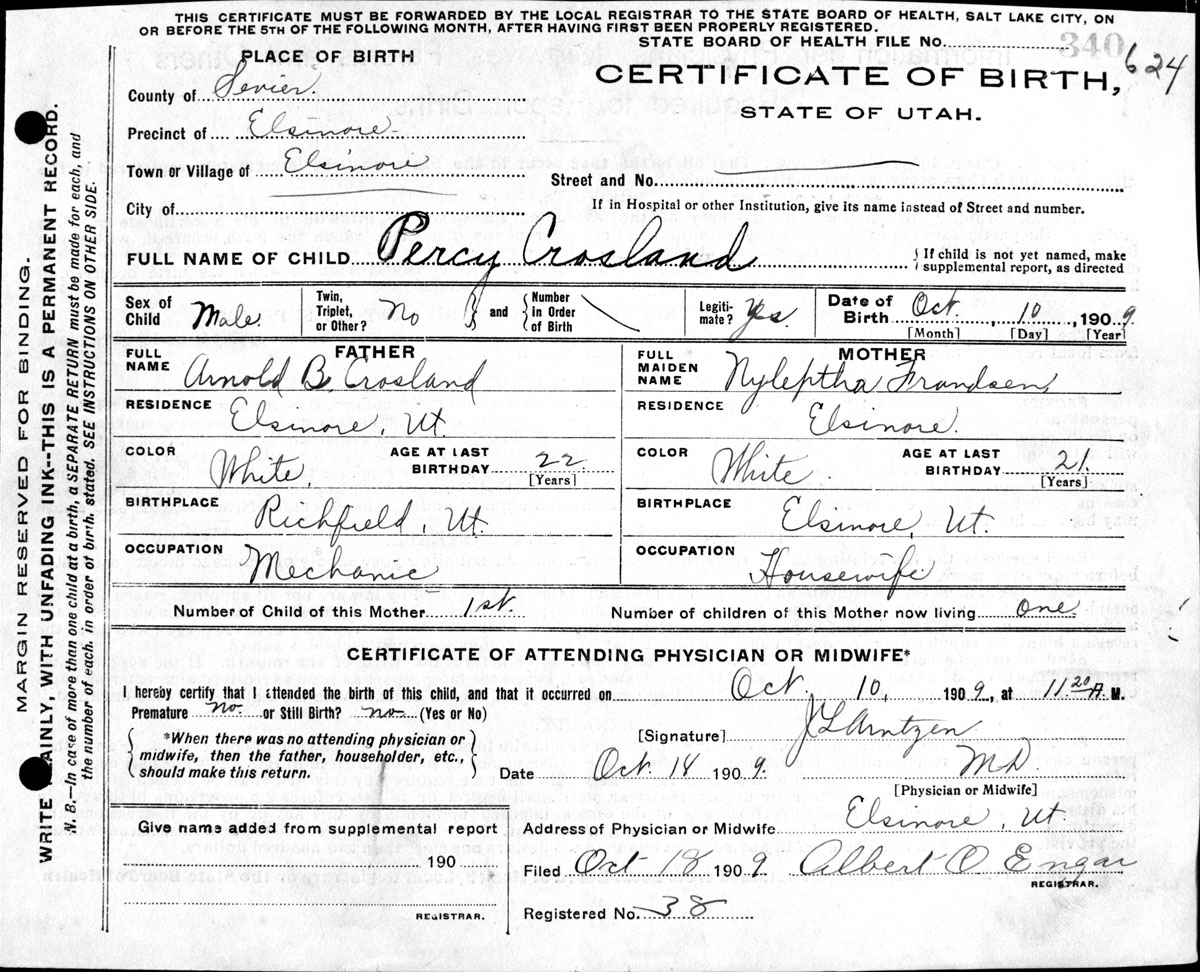 THIS CERTIFICATE MUST BE FORWARDED BY THE LOCAL REGISTRAR TO THE STATE BOARD OF HEALTH, SALT LAKE CITY, ON
OR BEFORE THE 5TH OF THE FOLLOWING MONTH, AFTER HAVING FIRST BEEN PROPERLY REGISTERED.
STATE BOARD OF HEALTH FILE No. 340
624
PLACE OF BIRTH
CERTIFICATE OF BIRTH,
STATE OF UTAH.
County of Sevier.
Precinct of Elsinore
Town or Village of Elsinore
Street and No.
City of
If in Hospital or other Institution, give its name instead of Street and number.
FULL NAME OF CHILD Percy Crosland { If child is not yet named, make
supplemental report, as directed
Sex of Child Male. Twin, Triplet, or Other? No } and { Number in Order of Birth Legiti-mate? Yes. Date of Birth Oct. 10, 1909
[Month] [Day] [Year]
FATHER
FULL NAME Arnold B. Crosland
RESIDENCE Elsinore, Ut.
COLOR White. AGE AT LAST BIRTHDAY 22 [Years]
BIRTHPLACE Richfield, Ut.
OCCUPATION Mechanic
MOTHER
FULL MAIDEN NAME Nyleptha Frandsen
RESIDENCE Elsinore.
COLOR White. AGE AT LAST BIRTHDAY 21. [Years]
BIRTHPLACE Elsinore, Ut.
OCCUPATION Housewife
Number of Child of this Mother 1st. Number of children of this Mother now living one
CERTIFICATE OF ATTENDING PHYSICIAN OR MIDWIFE*
I hereby certify that I attended the birth of this child, and that it occurred on Oct. 10, 1909, at 11.20 A M.
Premature no or Still Birth? no (Yes or No)
{ *When there was no attending physician or
midwife, then the father, householder, etc.,
should make this return. }
[Signature] J L Arntzen
Date Oct. 18 1909. M.D.
[Physician or Midwife]
Give name added from supplemental report
190
REGISTRAR.
Address of Physician or Midwife Elsinore, Ut
Filed Oct 18 1909 Albert O. Engar
REGISTRAR.
Registered No. 38
MARGIN RESERVED FOR BINDING.
WRITE AINLY, WITH UNFADING INK--THIS IS A PERMANENT RECORD.
N. B.--In case of more than one child at a birth, a SEPARATE RETURN must be made for each, and
the number of each, in order of birth, stated. SEE INSTRUCTIONS ON OTHER SIDE.